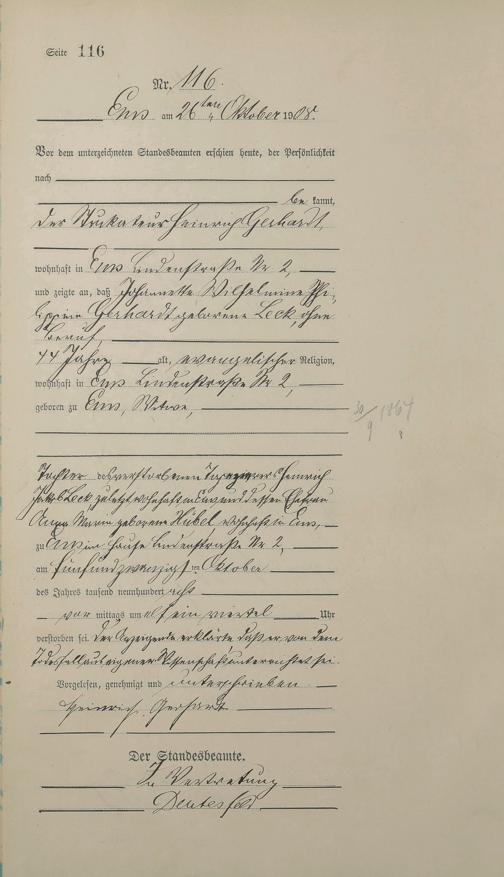 Seite 116
Nr. 116.
Ems am 26ten Oktober 1908.
Vor dem unterzeichneten Standesbeamten erschien heute, der Persönlichkeit
nach
be kannt,
der Stukateur Heinrich Gerhardt,
wohnhaft in Ems Lindenstraße Nr 2,
und zeigte an, daß Johannette Wilhelmine Phi-
lippine Gerhardt geborene Leck, ohne
Beruf,
44 Jahre alt, evangelischer Religion,
wohnhaft in Ems Lindenstraße Nr 2,
geboren zu Ems, Witwe,
30/9 1864
Tochter des verstorbenen Tapezierers Heinrich
Jakob Leck zuletzt wohnhaft in Ems und dessen Ehefrau
Anna Maria geborene Hübel wohnhaft in Ems,
zu Ems im Hause Lindenstraße Nr 2,
am fünfundzwanzigsten Oktober
des Jahres tausend neunhundert acht
vor mittags um elf ein viertel Uhr
verstorben sei. Der Anzeigende erklärte daß er von dem
Todesfall aus eigener Wissenschaft unterrichtet sei.
Vorgelesen, genehmigt und unterschrieben
Heinrich Gerhardt
Der Standesbeamte.
In Vertretung